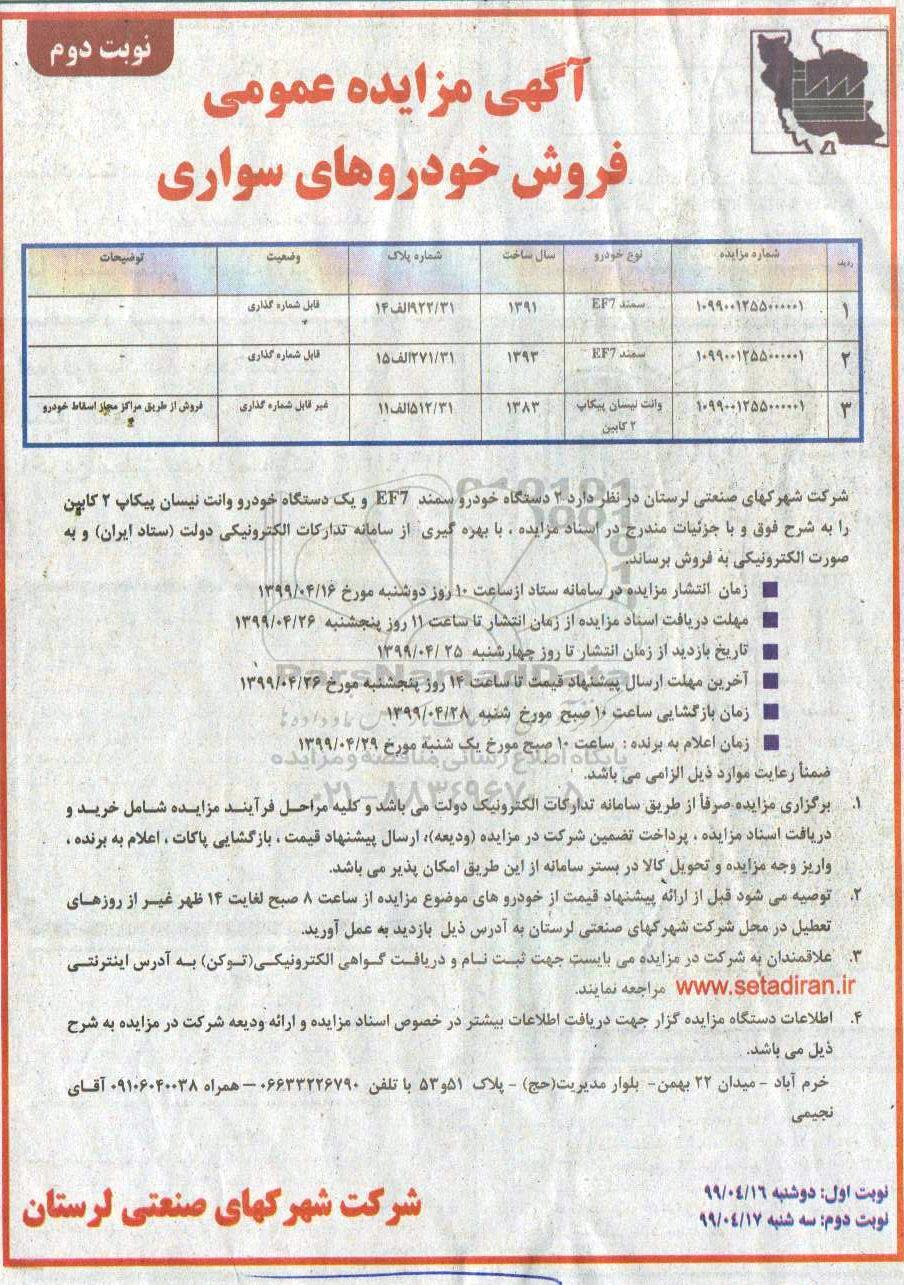 نوبت دوم
آگهی مزایده عمومی
فروش خودروهای سواری
ردیف شماره مزایده نوع خودرو سال ساخت شماره پلاک وضعیت توضیحات
۱ ۱۰۹۹۰۰۱۲۵۵۰۰۰۰۰۱ سمند EF7 ۱۳۹۱ ۹۲۲/۳۱الف۱۴ قابل شماره گذاری -
۲ ۱۰۹۹۰۰۱۲۵۵۰۰۰۰۰۱ سمند EF7 ۱۳۹۳ ۲۷۱/۳۱الف۱۵ قابل شماره گذاری -
۳ ۱۰۹۹۰۰۱۲۵۵۰۰۰۰۰۱ وانت نیسان پیکاپ ۲ کابین ۱۳۸۳ ۵۱۲/۳۱الف۱۱ غیر قابل شماره گذاری فروش از طریق مراکز مجاز اسقاط خودرو
شرکت شهرکهای صنعتی لرستان در نظر دارد ۲ دستگاه خودرو سمند EF7 و یک دستگاه خودرو وانت نیسان پیکاپ ۲ کابین
را به شرح فوق و با جزئیات مندرج در اسناد مزایده ، با بهره گیری از سامانه تدارکات الکترونیکی دولت (ستاد ایران) و به
صورت الکترونیکی به فروش برساند.
زمان انتشار مزایده در سامانه ستاد ازساعت ۱۰ روز دوشنبه مورخ ۱۳۹۹/۰۴/۱۶
مهلت دریافت اسناد مزایده از زمان انتشار تا ساعت ۱۱ روز پنجشنبه ۱۳۹۹/۰۴/۲۶
تاریخ بازدید از زمان انتشار تا روز چهارشنبه ۲۵ /۱۳۹۹/۰۴
آخرین مهلت ارسال پیشنهاد قیمت تا ساعت ۱۴ روز پنجشنبه مورخ ۱۳۹۹/۰۴/۲۶
زمان بازگشایی ساعت ۱۰ صبح مورخ شنبه ۱۳۹۹/۰۴/۲۸
زمان اعلام به برنده : ساعت ۱۰ صبح مورخ یک شنبه مورخ ۱۳۹۹/۰۴/۲۹
ParsNamadData
پایگاه اطلاع رسانی مناقصه و مزایده
۰۲۱-۸۸۳۴۹۶۷۰-۵
ضمناً رعایت موارد ذیل الزامی می باشد.
۱. برگزاری مزایده صرفاً از طریق سامانه تدارکات الکترونیک دولت می باشد و کلیه مراحل فرآیند مزایده شامل خرید و
دریافت اسناد مزایده ، پرداخت تضمین شرکت در مزایده (ودیعه)، ارسال پیشنهاد قیمت ، بازگشایی پاکات ، اعلام به برنده ،
واریز وجه مزایده و تحویل کالا در بستر سامانه از این طریق امکان پذیر می باشد.
۲. توصیه می شود قبل از ارائه پیشنهاد قیمت از خودرو های موضوع مزایده از ساعت ۸ صبح لغایت ۱۴ ظهر غیر از روزهای
تعطیل در محل شرکت شهرکهای صنعتی لرستان به آدرس ذیل بازدید به عمل آورید.
۳. علاقمندان به شرکت در مزایده می بایست جهت ثبت نام و دریافت گواهی الکترونیکی(توکن) به آدرس اینترنتی
www.setadiran.ir مراجعه نمایند.
۴. اطلاعات دستگاه مزایده گزار جهت دریافت اطلاعات بیشتر در خصوص اسناد مزایده و ارائه ودیعه شرکت در مزایده به شرح
ذیل می باشد.
خرم آباد - میدان ۲۲ بهمن- بلوار مدیریت(حج) - پلاک ۵۱و۵۳ با تلفن ۰۶۶۳۳۲۲۶۷۹۰ – همراه ۰۹۱۰۶۰۴۰۰۳۸ آقای
نجیمی
نوبت اول: دوشنبه ۹۹/۰٤/۱٦
نوبت دوم: سه شنبه ۹۹/۰٤/۱۷
شرکت شهرکهای صنعتی لرستان